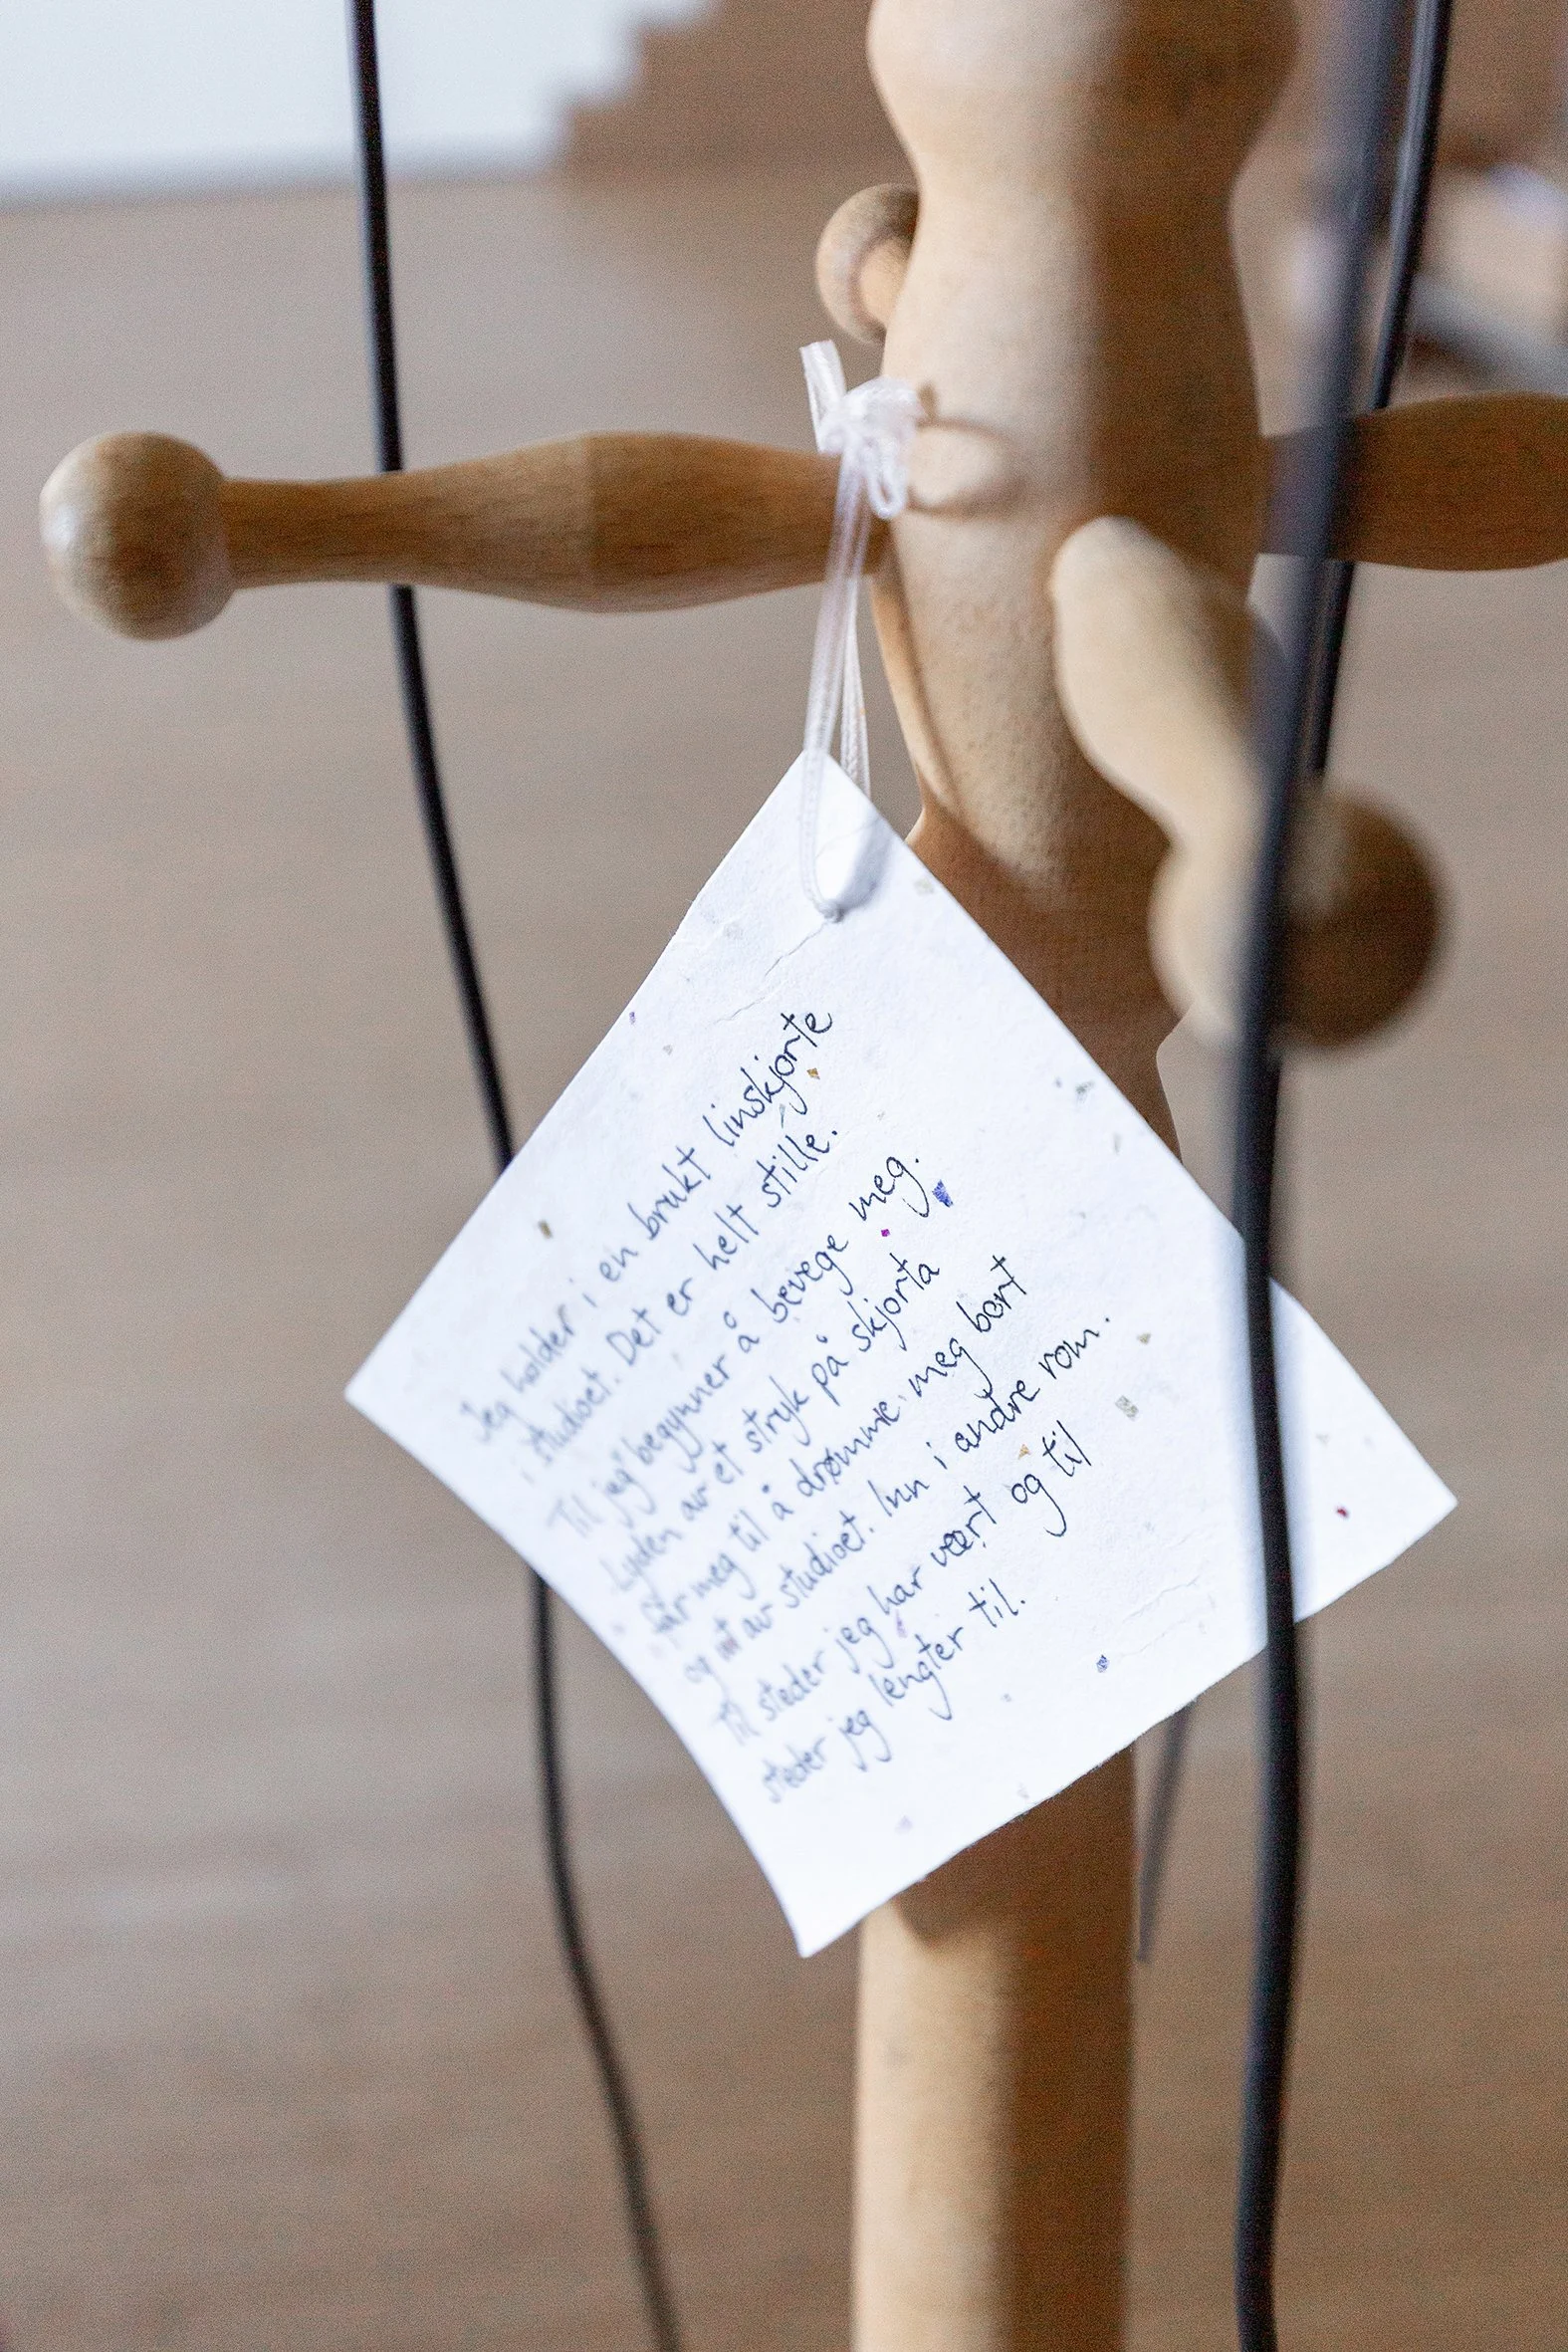 Jeg holder i en brukt linskjorte
i studioet. Det er helt stille.
Til jeg begynner å bevege meg.
Lyden av et stryk på skjorta
får meg til å drømme meg bort
og ut av studioet. Inn i andre rom.
Til steder jeg har vært og til
steder jeg lengter til.